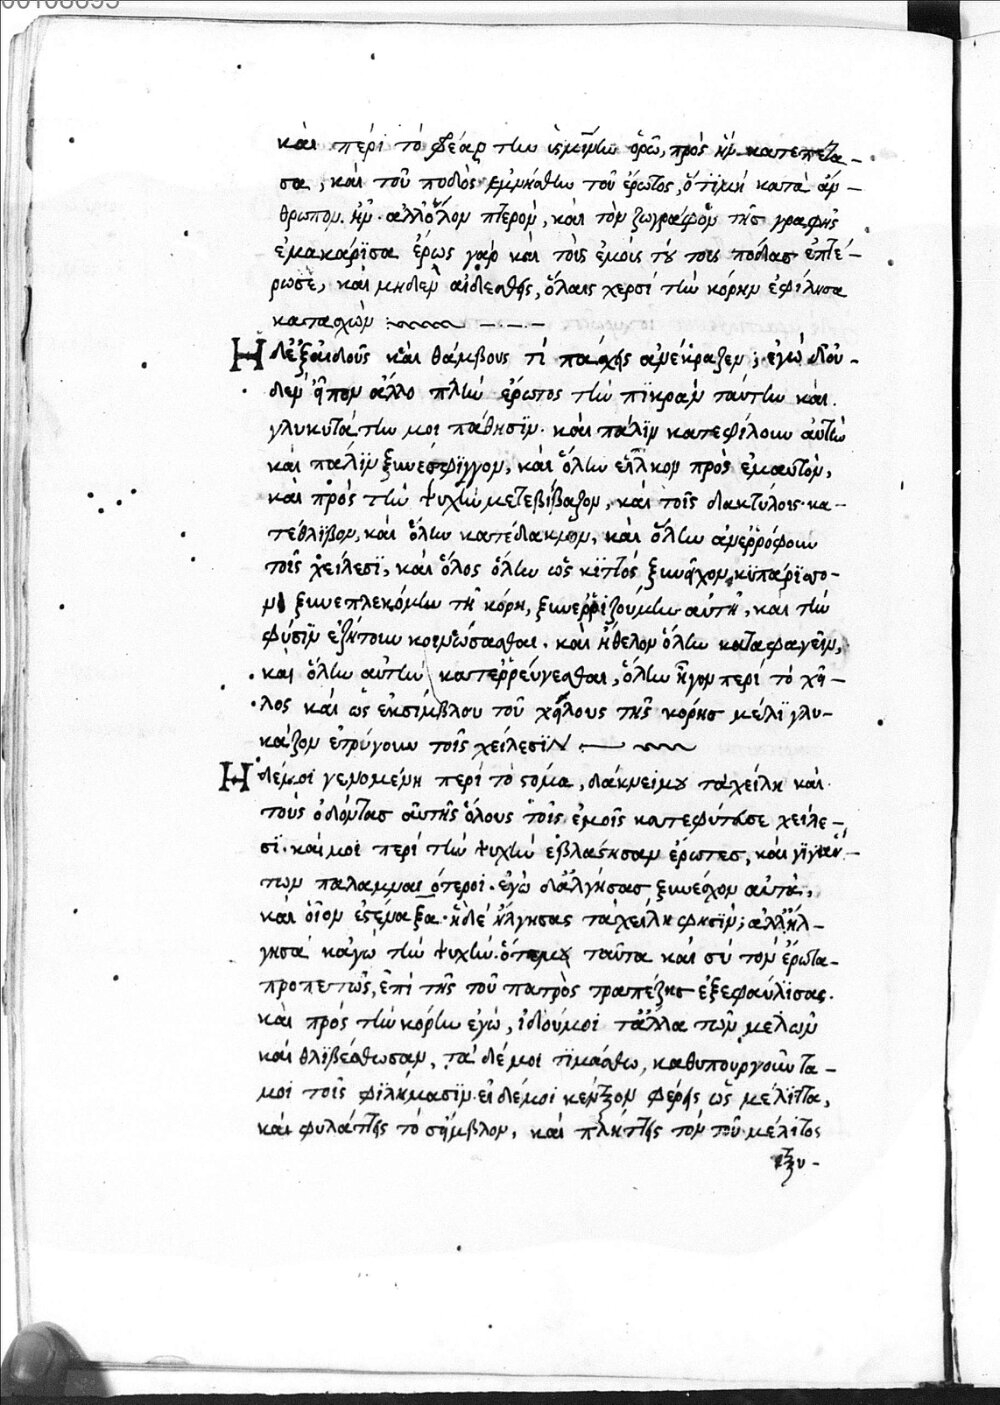 00108695
καὶ περὶ τὸ φρέαρ τὴν ὑσμίνην ὁρῶ, πρὸς ἣν κατεπέτα-
σα, καὶ τοῦ ποδὸς ἐμνήσθην τοῦ ἔρωτος, ὅτι μὴ κατὰ ἄν-
θρωπον ἦν ἀλλ' ὅλον πτερὸν, καὶ τὸν ζωγράφον τῆς γραφῆς
ἐμακάρϊσα ἔρως γὰρ καὶ τοῖς ἐμοῖς τούτοις πόδας ἐπτέ-
ρωσε, καὶ μηδὲν αἰδεσθεὶς, ὅλαις χερσὶ τὴν κόρην ἐφίλησα
κατασχὼν
Ἡ δ' ἐξ αἰδοῦς καὶ θάμβους τί πάσχεις ἀνέκραξεν; ἐγὼ δ' οὐ-
δὲν εἶπον ἄλλο πλὴν ἔρωτος τὴν πϊκρὰν ταύτην καὶ
γλυκυτάτην μοι πάθησϊν· καὶ πάλϊν κατεφίλουν αὐτὴν
καὶ πάλϊν ξυνέσφϊγγον, καὶ ὅλην εἷλκον πρὸς ἐμαυτὸν,
καὶ πρὸς τὴν ψυχὴν μετεβίβαζον, καὶ τοῖς δακτύλοις κα-
τέθλϊβον, καὶ ὅλην κατέδακνον, καὶ ὅλην ἀνερρόφουν
τοῖς χείλεσϊ, καὶ ὅλος ὅλην ὡς κϊττὸς ξυνῆχον κϋπάρϊσσο-
ν ξυνεπλεκόμην τῇ κόρῃ, ξυνερριζούμην αὐτῇ, καὶ τὴν
φύσϊν ἐζήτουν κοινώσασθαι. καὶ ἤθελον ὅλην καταφαγεῖν,
καὶ ὅλην αὐτὴν κατερρεύγεσθαι, ὅλην ἦγον περὶ τὸ χεῖ-
λος καὶ ὡς ἐκ σίμβλου τοῦ χείλους τῆς κόρης μέλϊ γλυ-
κάζον ἐτρύγουν τοῖς χείλεσϊν
Ἡ δέ μοι γενομένη περὶ τὸ στόμα, δάκνει μου τὰ χείλη καὶ
τοὺς ὀδόντας αὐτῆς ὅλους τοῖς ἐμοῖς κατεφύτευσε χείλε-
σϊ. καί μοι περὶ τὴν ψυχὴν ἐβλάστησαν ἔρωτες, καὶ γϊγάν-
των παλαμναιότεροι. ἐγὼ δ' ἀλγήσας ξυνέσχον αὐτὰ,
καὶ οἷον ἐστέναξα. ἡ δὲ ἤλγησας τὰ χείλη φησϊν; ἀλλ' ἤλ-
γησα κἀγὼ τὴν ψυχὴν ὅτε μου ταῦτα καὶ σὺ τὸν ἔρωτα
προπετῶς, ἐπὶ τῆς τοῦ πατρὸς τραπέζης ἐξεφαύλϊσας.
καὶ πρὸς τὴν κόρην ἐγὼ, ἰδού μοι τἄλλα τῶν μελῶν
καὶ θλϊβέσθωσαν, τὰ δέ μοι τϊμάσθω, καθυπουργοῦντα
μοι τοῖς φϊλήμασϊν. εἰ δέ μοι κέντρον φέρεις ὡς μέλϊττα,
καὶ φυλάττεις τὸ σίμβλον, καὶ πλήττεις τὸν τοῦ μέλιτος
τρυ-